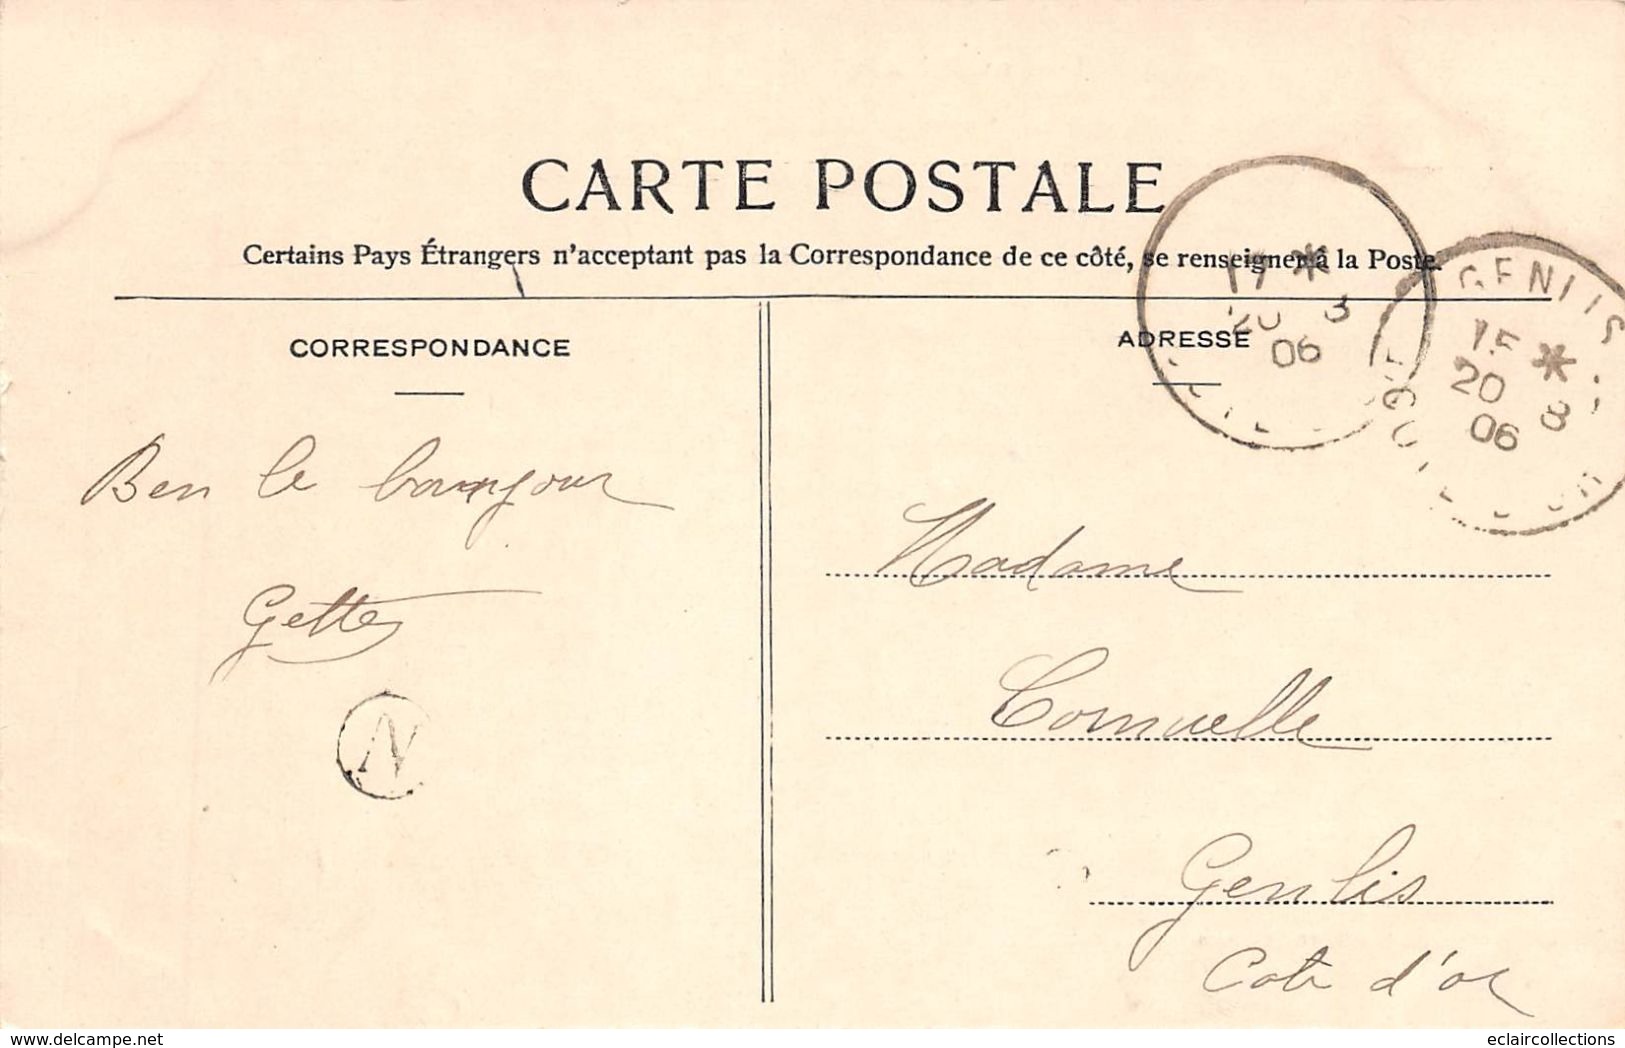 CARTE POSTALE
Certains Pays Étrangers n'acceptant pas la Correspondance de ce côté, se renseigner à la Poste.
CORRESPONDANCE
ADRESSE
17 *
20 8
06
GENLIS
15 *
20 8
06
COTE D'OR
Ben le bonjour
Gette
N
Madame
Cornuelle
Genlis
Cote d'or
delcampe.net
eclaircollections